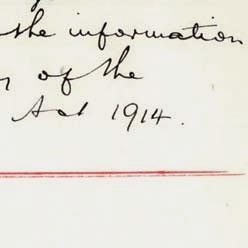 the information
of the
Act 1914.